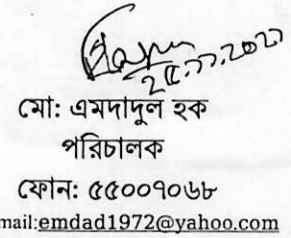 ২৫.১১.২০২১
মো: এমদাদুল হক
পরিচালক
ফোন: ৫৫০০৭০৬৮
mail:emdad1972@yahoo.com